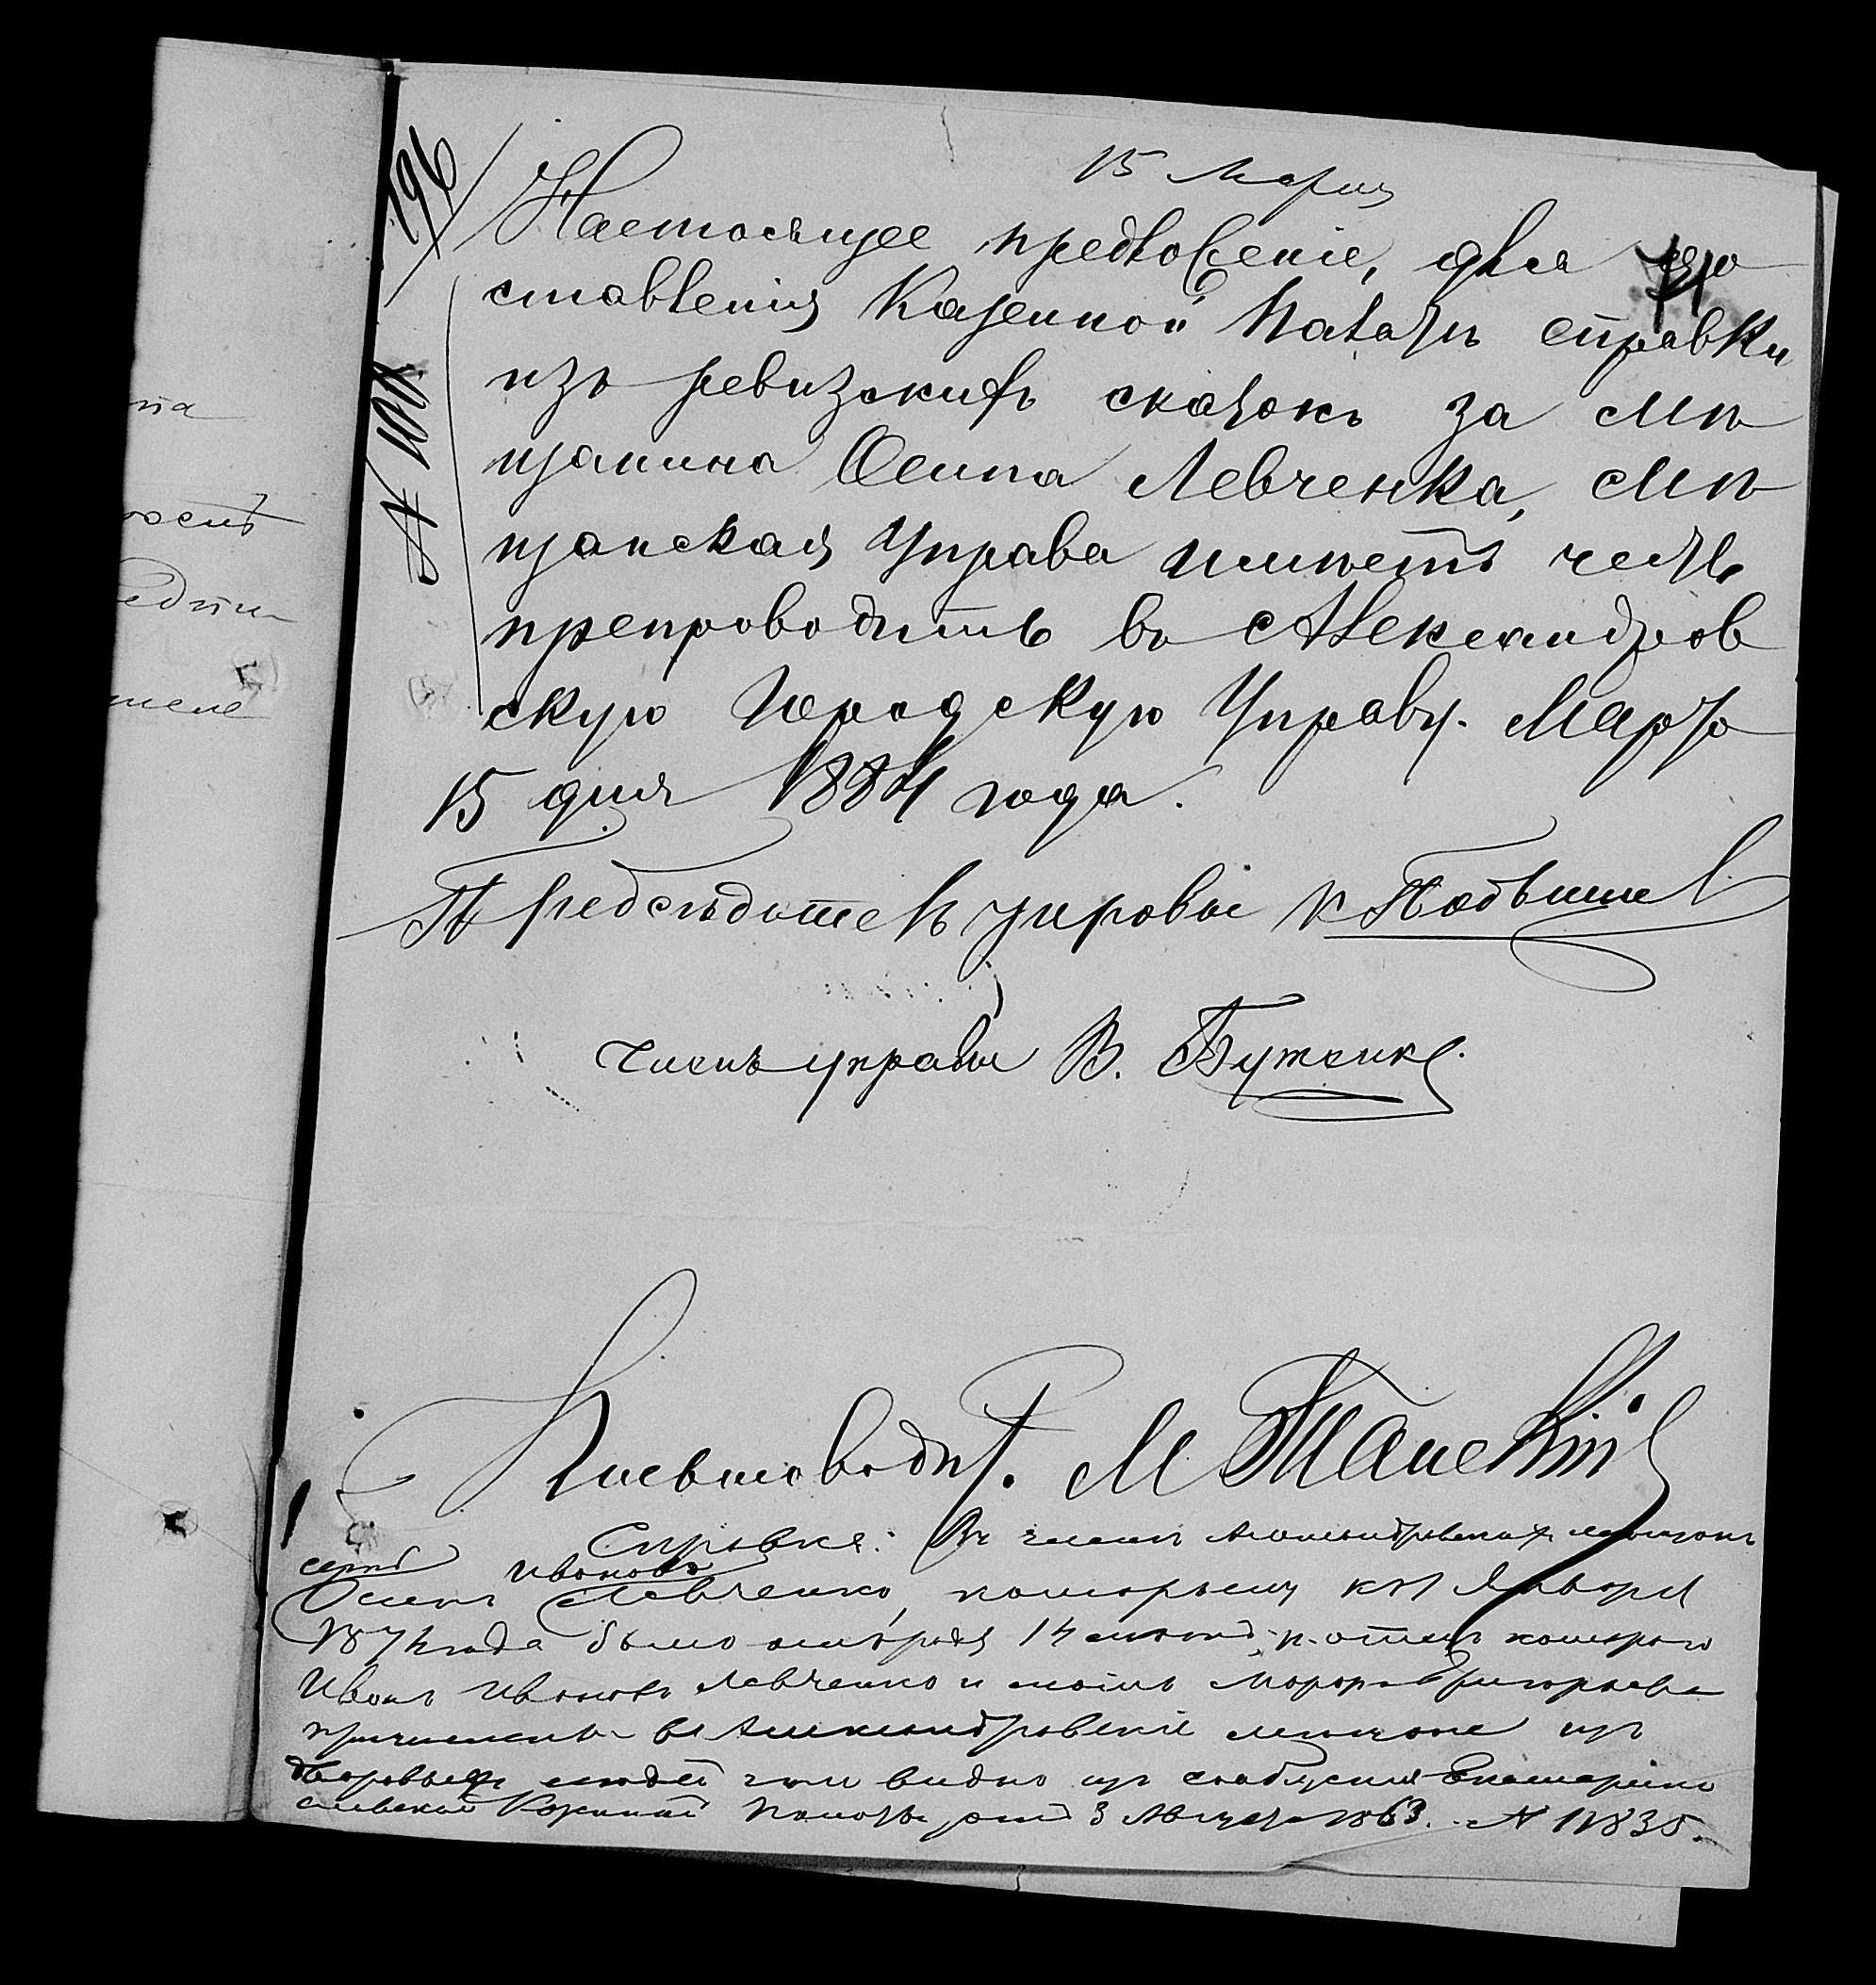 196
15 Марта
Настоящее предложеніе, для до
ставленія Казенной Палатѣ справки
изъ ревизскихъ сказокъ за мѣ
щанина Осипа Левченка, мѣ
щанская Управа имѣетъ честь
препроводить въ Александров
скую Городскую Управу. Марта
15 дня 1884 года.
Предсѣдатель управы
Членъ управы В. Буженко
Письмоводит. М
Справка: Въ числѣ Александровскихъ мѣщанъ
семъ Ивановъ
Осипъ Левченко, которому къ 1 Января
1874 года было отъ роду 14 лѣтъ, отецъ котораго
Иванъ Ивановъ Левченко и мать Григорьева
причислены въ Александровскіе мѣщане изъ
дворовыхъ людей, какъ видно изъ сообщенія Екатерино
славской Казенной Палаты отъ 3 Августа 1863. № 11835.